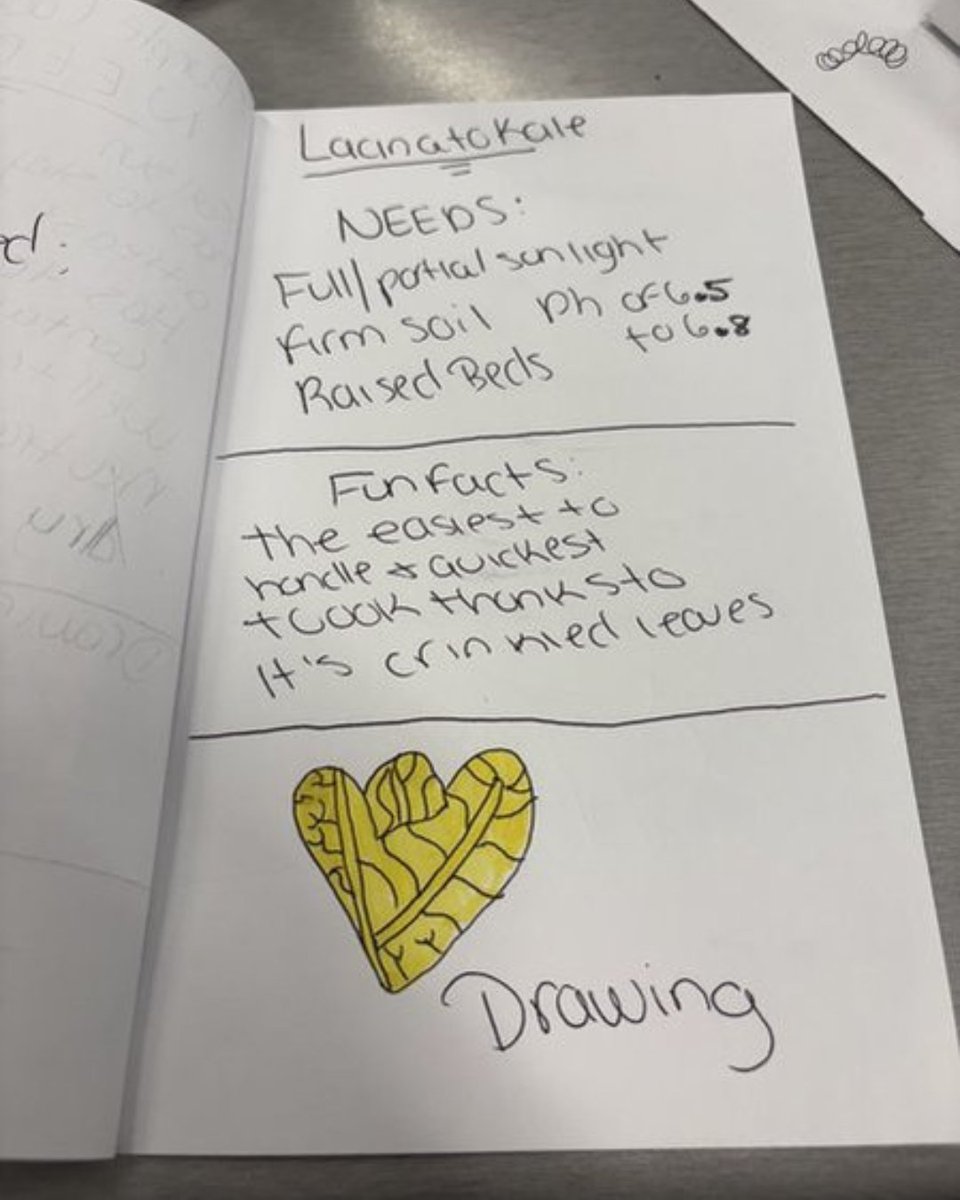 d:
Lacinato Kale
NEEDS:
Full/partial sunlight
firm soil Ph of 6.5
to 6.8
Raised Beds
Fun facts:
the easiest to
handle + quickest
to cook thanks to
It's crinkled leaves
Drawing